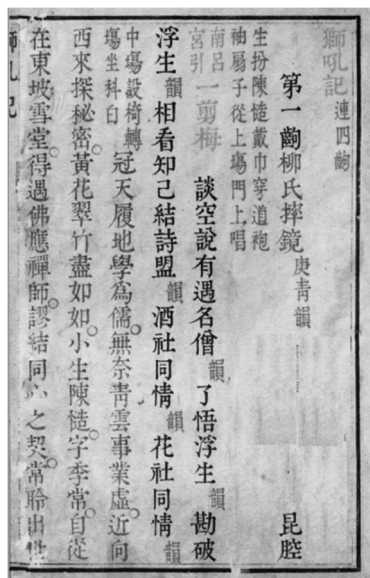 獅吼記 連四齣
第一齣 柳氏摔鏡 庚青韻 昆腔
生扮陳慥戴巾穿道袍
袖扇子從上塲門上唱
南呂宮引 一剪梅 談空說有遇名僧韻 了悟浮生韻 勘破
浮生韻 相看知己結詩盟韻 酒社同情韻 花社同情韻
中塲設椅轉塲坐科白 冠天履地學為儒無奈青雲事業虛近向
西來探秘密黃花翠竹盡如如小生陳慥字季常自從
在東坡雪堂得遇佛應禪師謬結同心之契常聆出世
獅吼記